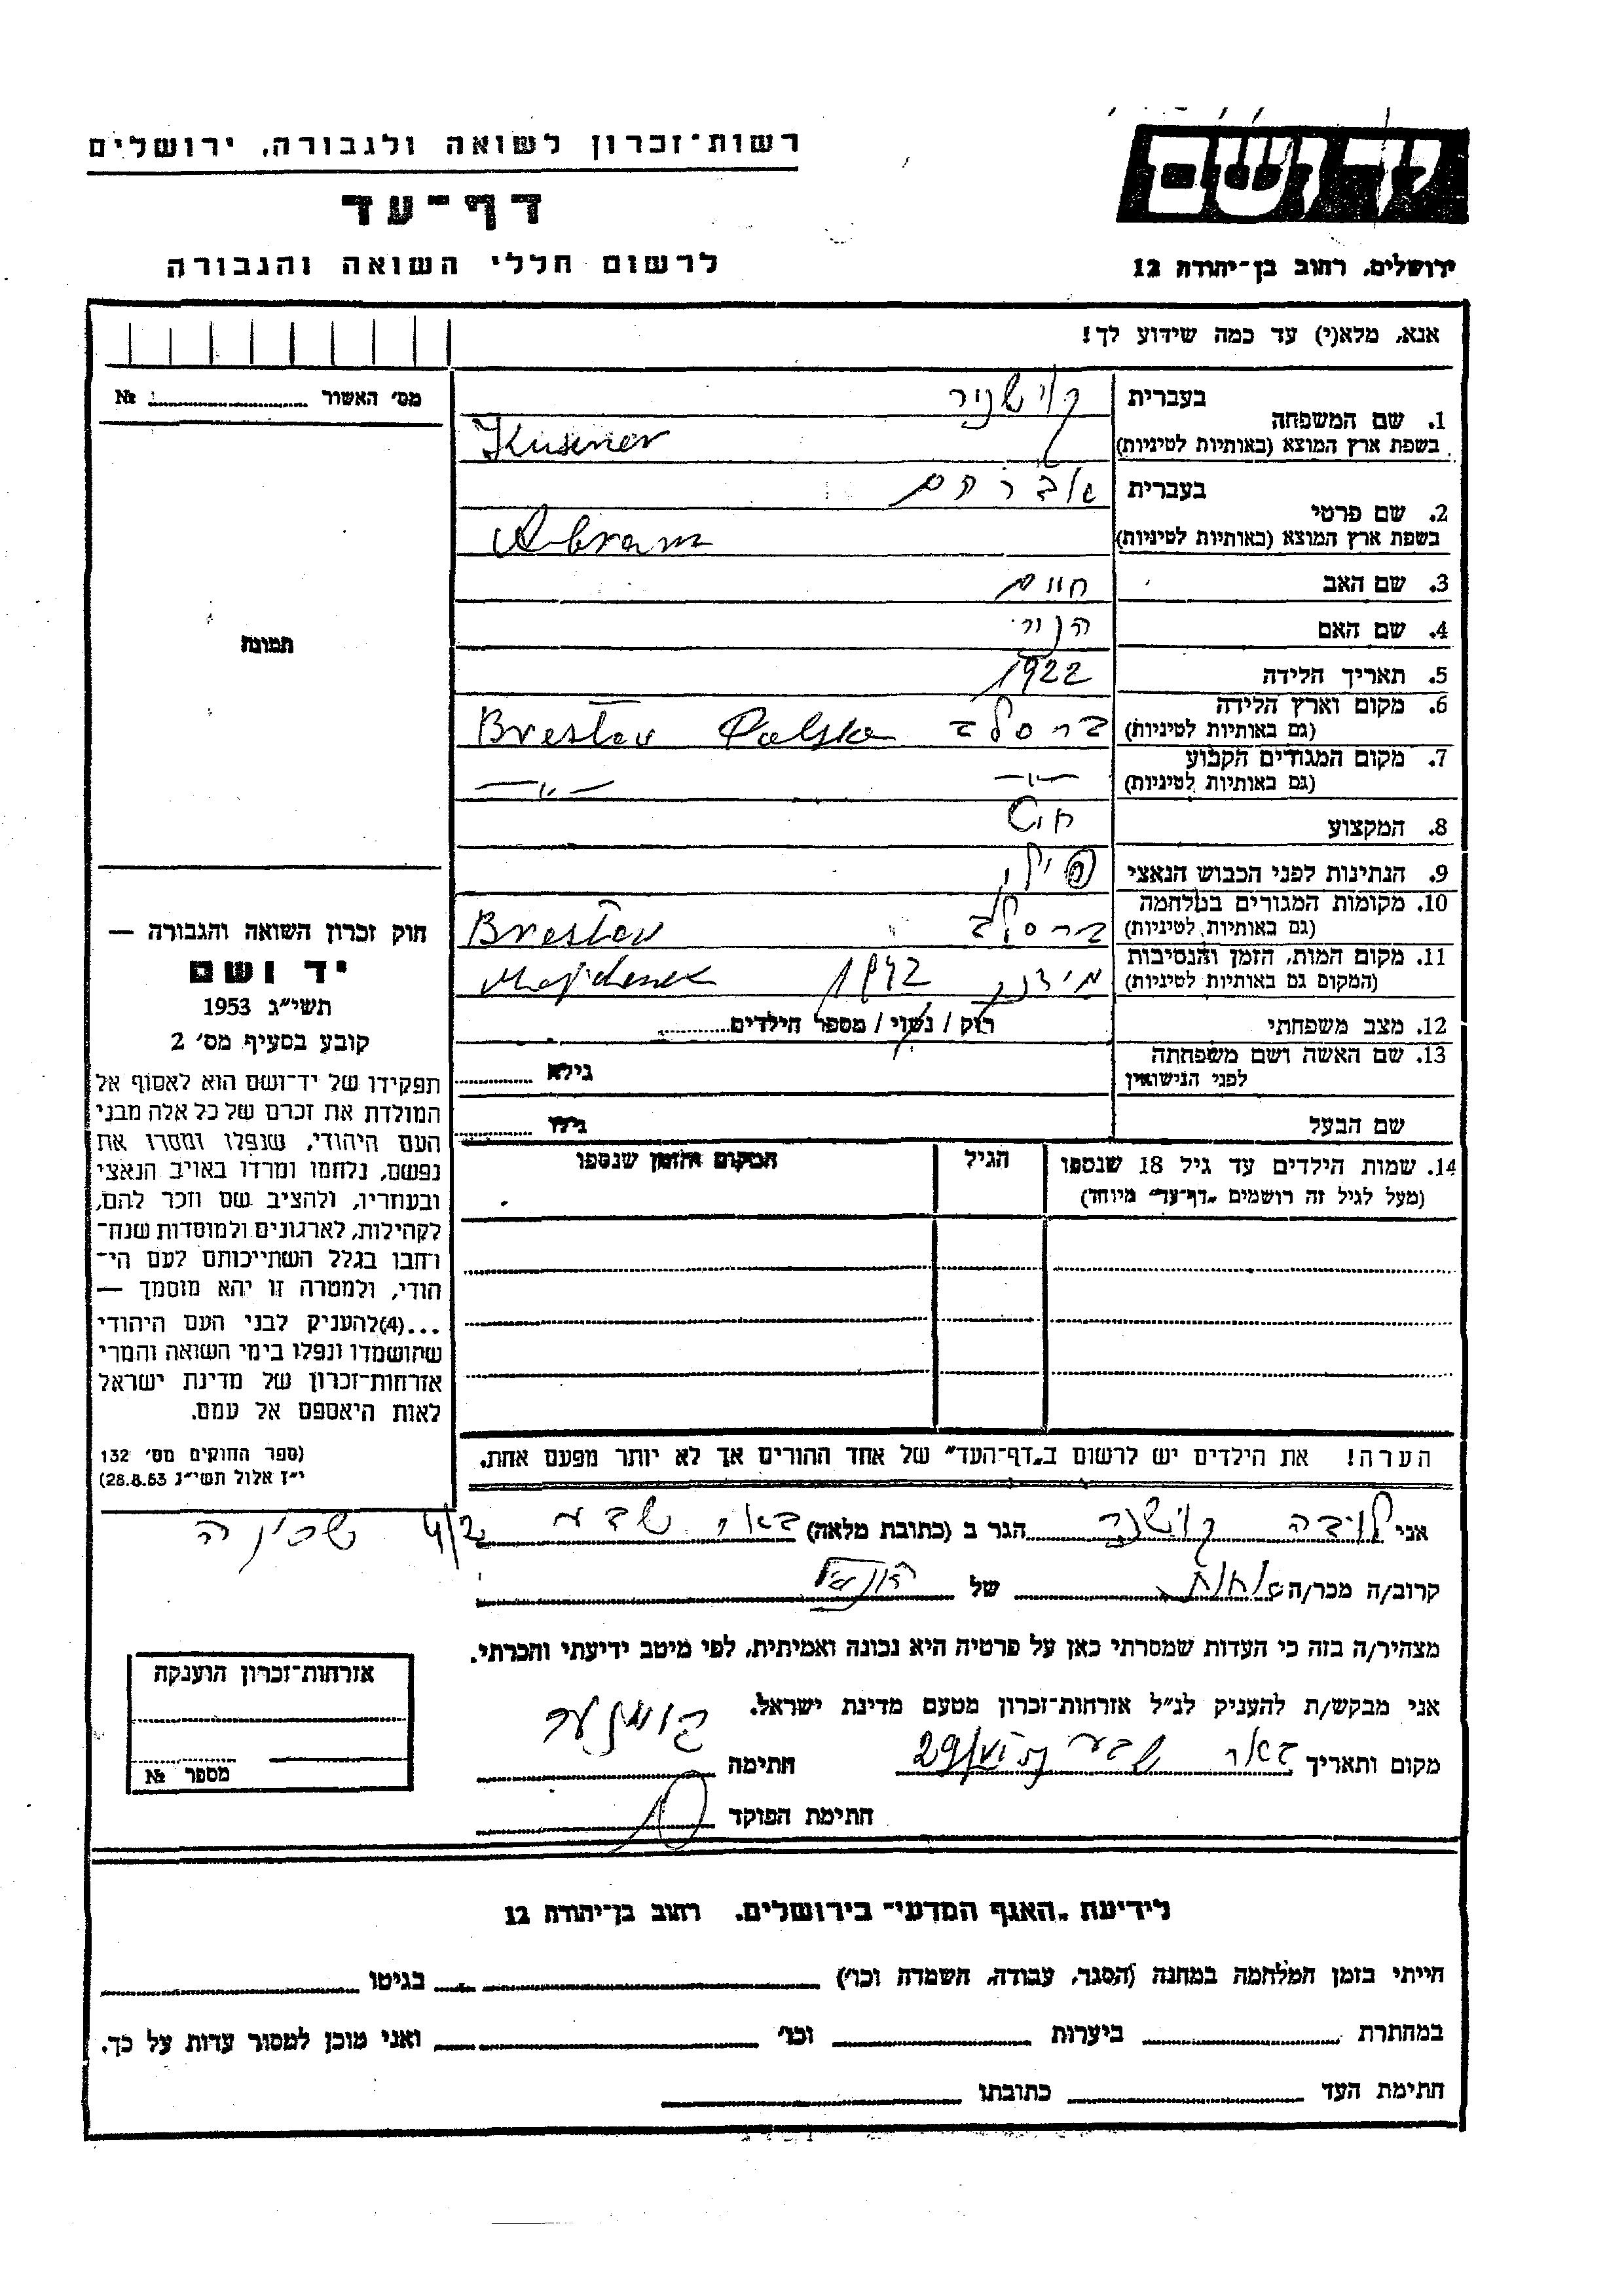 יד ושם
רשות־זכרון לשואה ולגבורה, ירושלים
דף־עד
ירושלים, רחוב בן־יהודה 12
לרשום חללי השואה והגבורה
אנא, מלא(י) עד כמה שידוע לך!
מס׳ האשור № 
תמונה
חוק זכרון השואה והגבורה —
יד ושם
תשי״ג 1953
קובע בסעיף מס׳ 2
תפקידו של יד־ושם הוא לאסוף אל
המולדת את זכרם של כל אלה מבני
העם היהודי, שנפלו ומסרו את
נפשם, נלחמו ומרדו באויב הנאצי
ובעוזריו, ולהציב שם וזכר להם,
לקהילות, לארגונים ולמוסדות שנח־
רחבו בגלל השתייכותם לעם הי־
הודי, ולמטרה זו יהא מוסמך —
...(4)להעניק לבני העם היהודי
שהושמדו ונפלו בימי השואה והמרי
אזרחות־זכרון של מדינת ישראל
לאות היאספם אל עמם.
(ספר החוקים מס׳ 132
י״ז אלול תשי״ג 28.8.53)
בעברית קושניר
1. שם המשפחה
בשפת ארץ המוצא (באותיות לטיניות) Kusener
בעברית אברהם
2. שם פרטי
בשפת ארץ המוצא (באותיות לטיניות) Abram
3. שם האב חיים
4. שם האם
5. תאריך הלידה 1922
6. מקום וארץ הלידה
(גם באותיות לטיניות) ברסלב Breslav Polska
7. מקום המגורים הקבוע
(גם באותיות לטיניות) —״— —״—
8. המקצוע חייט
9. הנתינות לפני הכבוש הנאצי פולני
10. מקומות המגורים במלחמה
(גם באותיות לטיניות) ברסלב Breslav
11. מקום המות, הזמן והנסיבות
(המקום גם באותיות לטיניות) מידנק 1942 Majdenek
12. מצב משפחתי רוק / נשוי / מספר הילדים
13. שם האשה ושם משפחתה
לפני הנישואין גילא
שם הבעל גילו
14. שמות הילדים עד גיל 18 שנספו הגיל המקום והזמן שנספו
(מעל לגיל זה רושמים „דף־עד״ מיוחד)
הערה! את הילדים יש לרשום ב„דף־העד״ של אחד ההורים אך לא יותר מפעם אחת.
אני ליובה קושנר הגר ב (כתובת מלאה) באר שבע שכונה
קרוב/ה מכר/ה אחות של הנספה
מצהיר/ה בזה כי העדות שמסרתי כאן על פרטיה היא נכונה ואמיתית, לפי מיטב ידיעתי והכרתי.
אני מבקש/ת להעניק לנ״ל אזרחות־זכרון מטעם מדינת ישראל.
מקום ותאריך באר שבע חתימה
חתימת הפוקד
אזרחות־זכרון הוענקה
מספר №
לידיעת „האגף המדעי״ בירושלים, רחוב בן־יהודה 12
הייתי בזמן המלחמה במחנה (הסגר, עבודה, השמדה וכו׳) בגיטו
במחתרת ביערות וכו׳ ואני מוכן למסור עדות על כך.
חתימת העד כתובתו